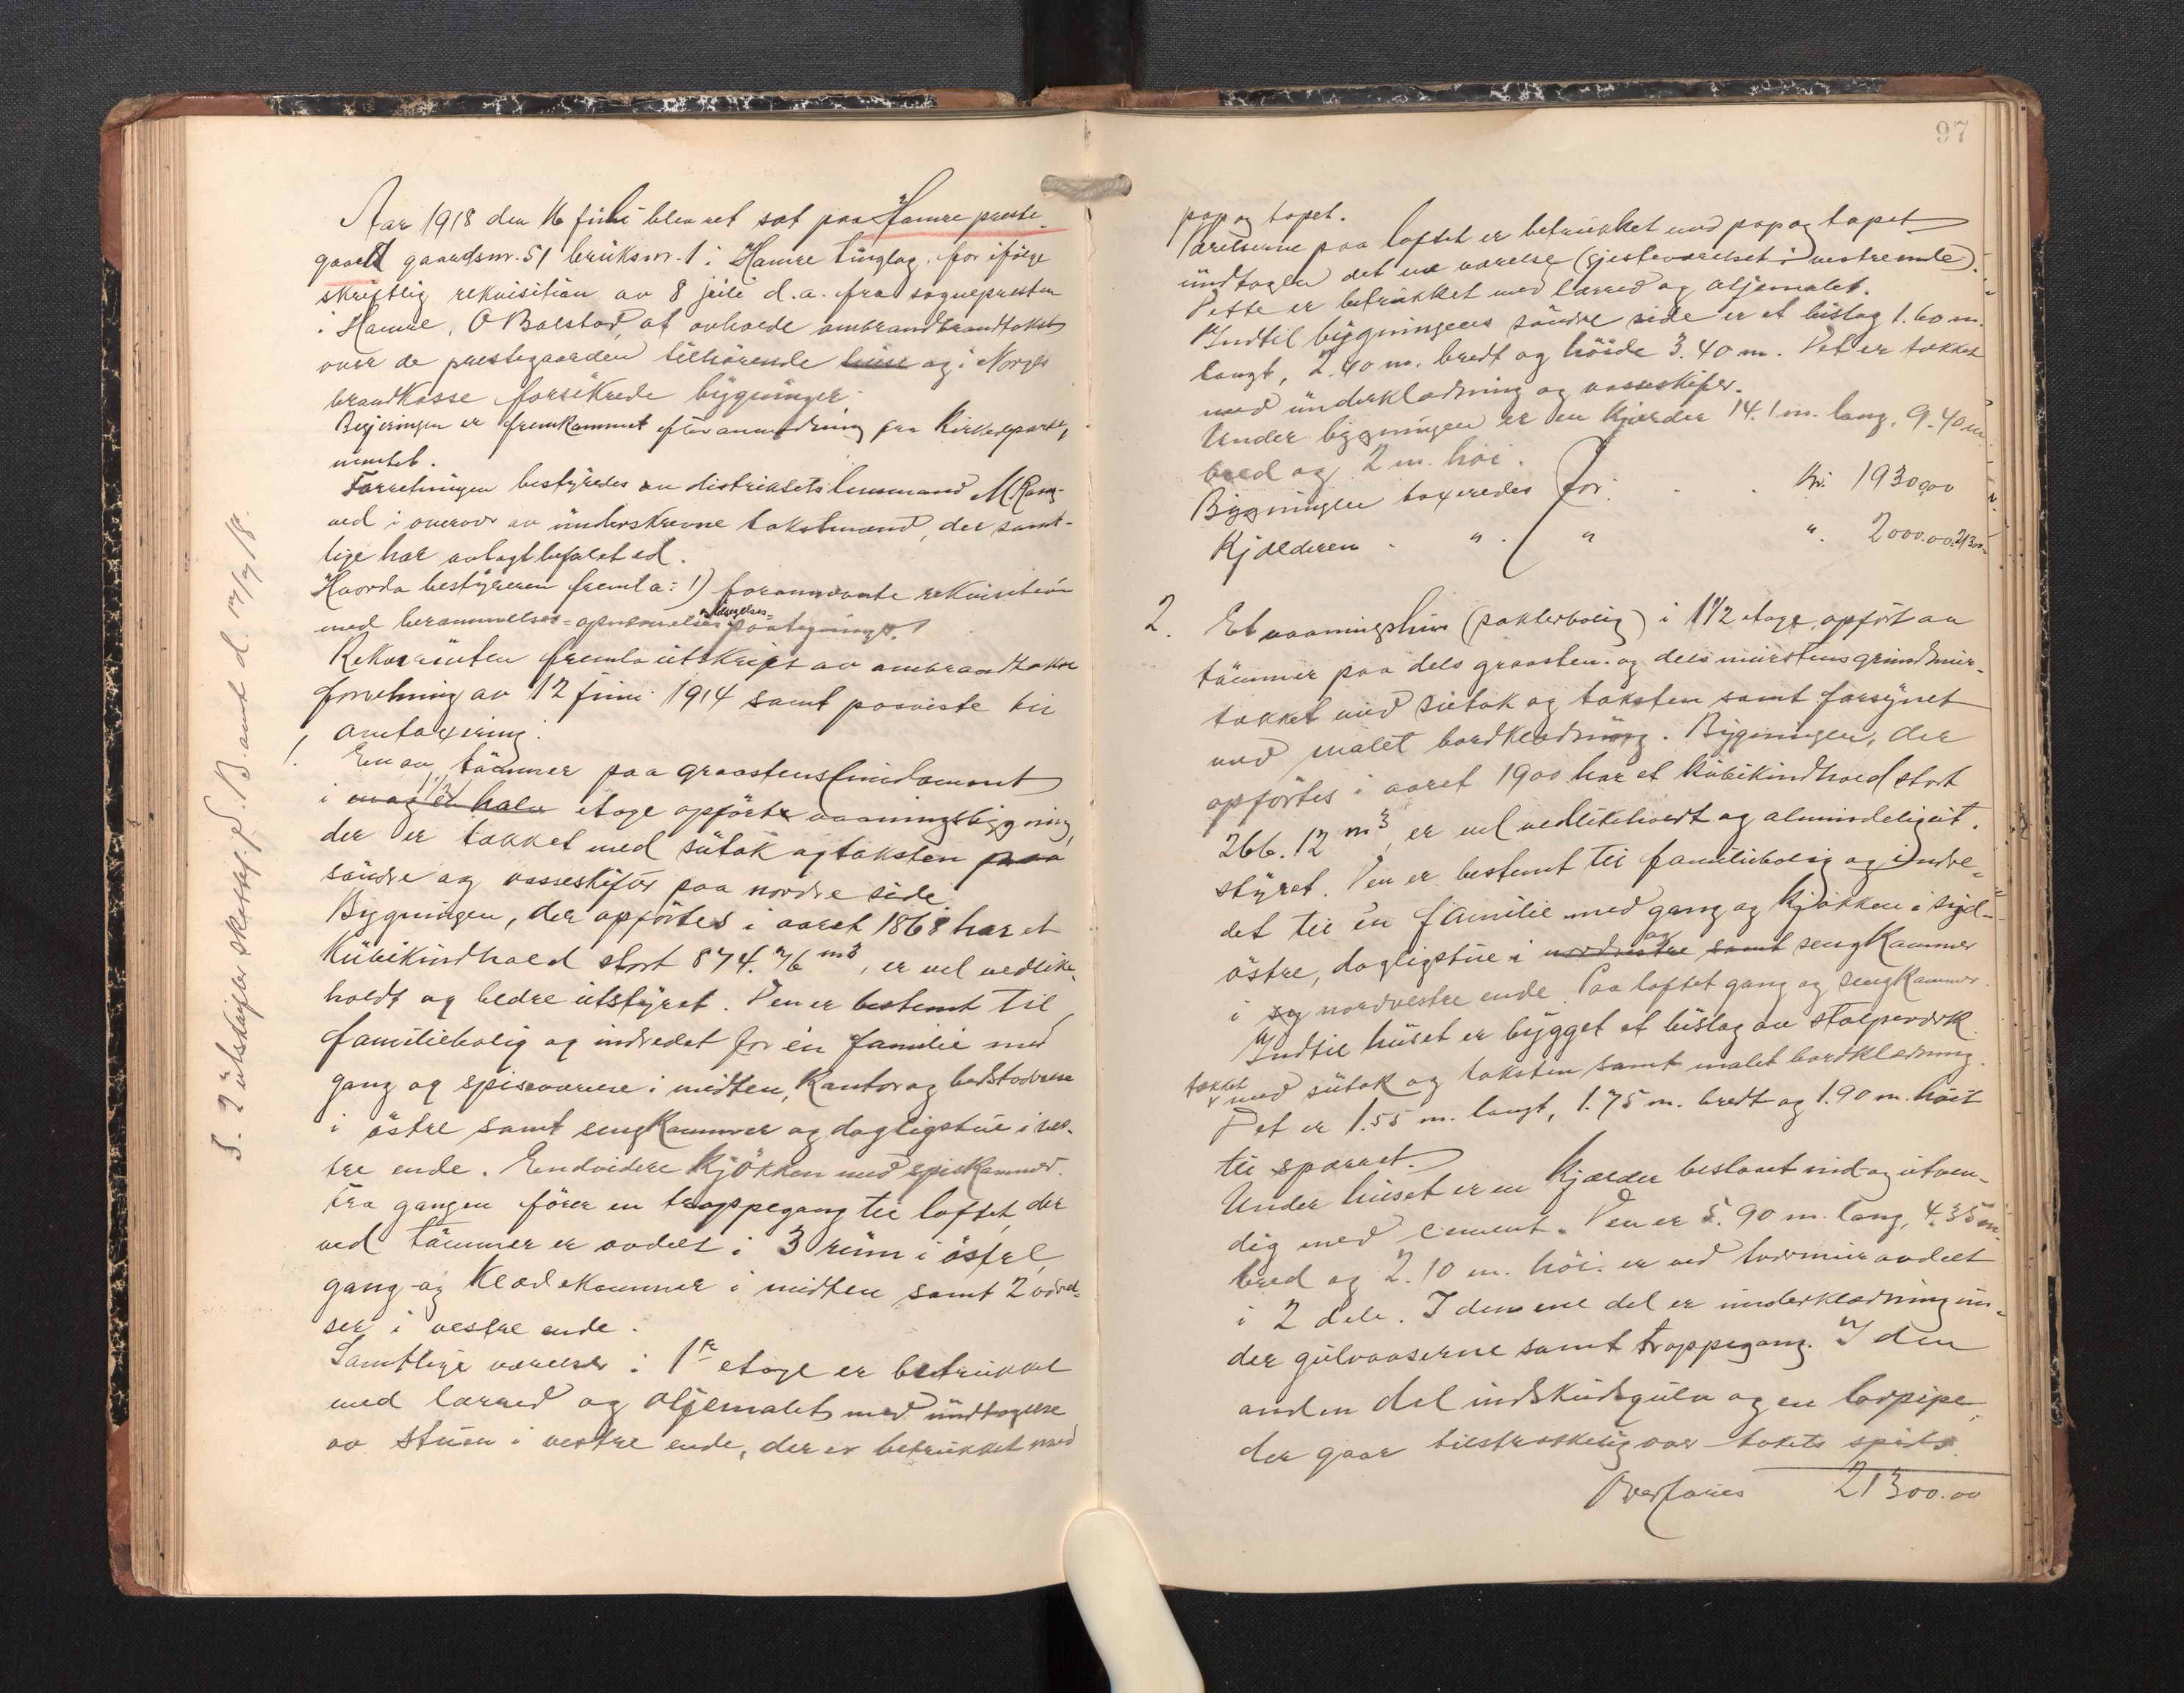 Aar 1918 den 16 juli blev ret sat paa Hamre preste-
gaard gaardsnr. 51 bruksnr. 1 i Hamre tinglag, for ifølge
skriftlig rekvisition av 8 juli d.a. fra sognepresten
i Hamre, O Balstad, at avholde ombrandtakst
over de prestegaarden tilhørende huse og i Norges
brandkasse forsikrede bygninger.
Begjeringen er fremkommet efter anmodning fra Kirkedeparte-
mentet.
Forretningen bestyredes av distriktets lensmand M. Ram-
ved i overvær av underskrevne takstmænd, der samt-
lige har avlagt befalet ed.
Hvorda bestyreren fremla: 1) forannævnte rekvisition
med berammelses- opnævnelses- paategninger.
Rekvirenten fremla utskrift av ombrandtakst
forretning av 12 juni 1914 samt paaviste til
omtaxering:
1. En av tømmer paa graastensfundament
i en og en halv 1 1/2 etage opført vaaningsbygning,
der er tækket med sutak og taksten paa
søndre og vosseskifer paa nordre side.
Bygningen, der opførtes i aaret 1868 har et
Kubikindhold stort 874.76 m3, er vel vedlike-
holdt og bedre utstyret. Den er bestemt til
familiebolig og indredet for én familie med
gang og spiseværelse i midten, Kontor og bedstestue
i østre samt sengkammer og dagligstue i ves-
tre ende. Endvidere Kjøkken med spiskammer.
Fra gangen fører en trappegang til loftet, der
ved tømmer er avdelt i 3 rum i østre,
gang og Klædekammer i midten samt 2 værel-
ser i vestre ende.
Samtlige værelser i 1ste etage er betrukket
med lærred og oljemalet med undtagelse
av stuen i vestre ende, der er betrukket med
S. 2 utskrifter sketstpt. f. N. B. amt d. 17/7 18.
97
pap og tapet.
Værelserne paa loftet er betrukket med pap og tapet
undtagen det ene værelse (gjesteværelset i vestre ende).
Dette er betrukket med lærred og oljemalet.
Indtil bygningens søndre side er et bislag 1.60 m.
langt, 2.40 m. bredt og høide 3.40 m. Det er tækket
med underklædning og vosseskifer.
Under bygningen er en Kjelder 14.1 m. lang, 9.40 m
bred og 2 m. høi.
Bygningen taxeredes for: . . Kr. 19300,00
Kjælderen . " . " ". 2000.00. 21300.-
2. Et vaaningshus (pakterbolig) i 1 1/2 etage, opført av
tømmer paa dels graasten- og dels murstensgrundmur,
tækket med sutak og taksten samt forsynet
med malet bordklædning. Bygningen, der
opførtes i aaret 1900 har et kubikindhold stort
266.12 m3, er vel vedlikeholdt og almindelig ut-
styret. Den er bestemt til familiebolig og indre-
det til én familie med gang og Kjøkken i syd-
østre, dagligstue i nordvestre samt og sengKammer
i sy nordvestre ende. Paa loftet gang og sengKammer.
Indtil huset er bygget et bislag av stolpeværk
tækket med sutak og taksten samt malet bordklædning.
Det er 1.55 m. langt, 1.75 m. bredt og 1.90 m. høit
til sparret.
Under huset er en Kjælder beslaaet ind- og utven-
dig med cement. Den er 5.90 m. lang, 4.35 m
bred og 2.10 m. høi. er ved tvermur avdelt
i 2 dele. I den ene del er underklædning un-
der gulvaaserne samt trappegang. I den
anden del indskudsgulv og en lodpipe,
der gaar tilstrækkelig over takets spids.
Overføres 21300.00